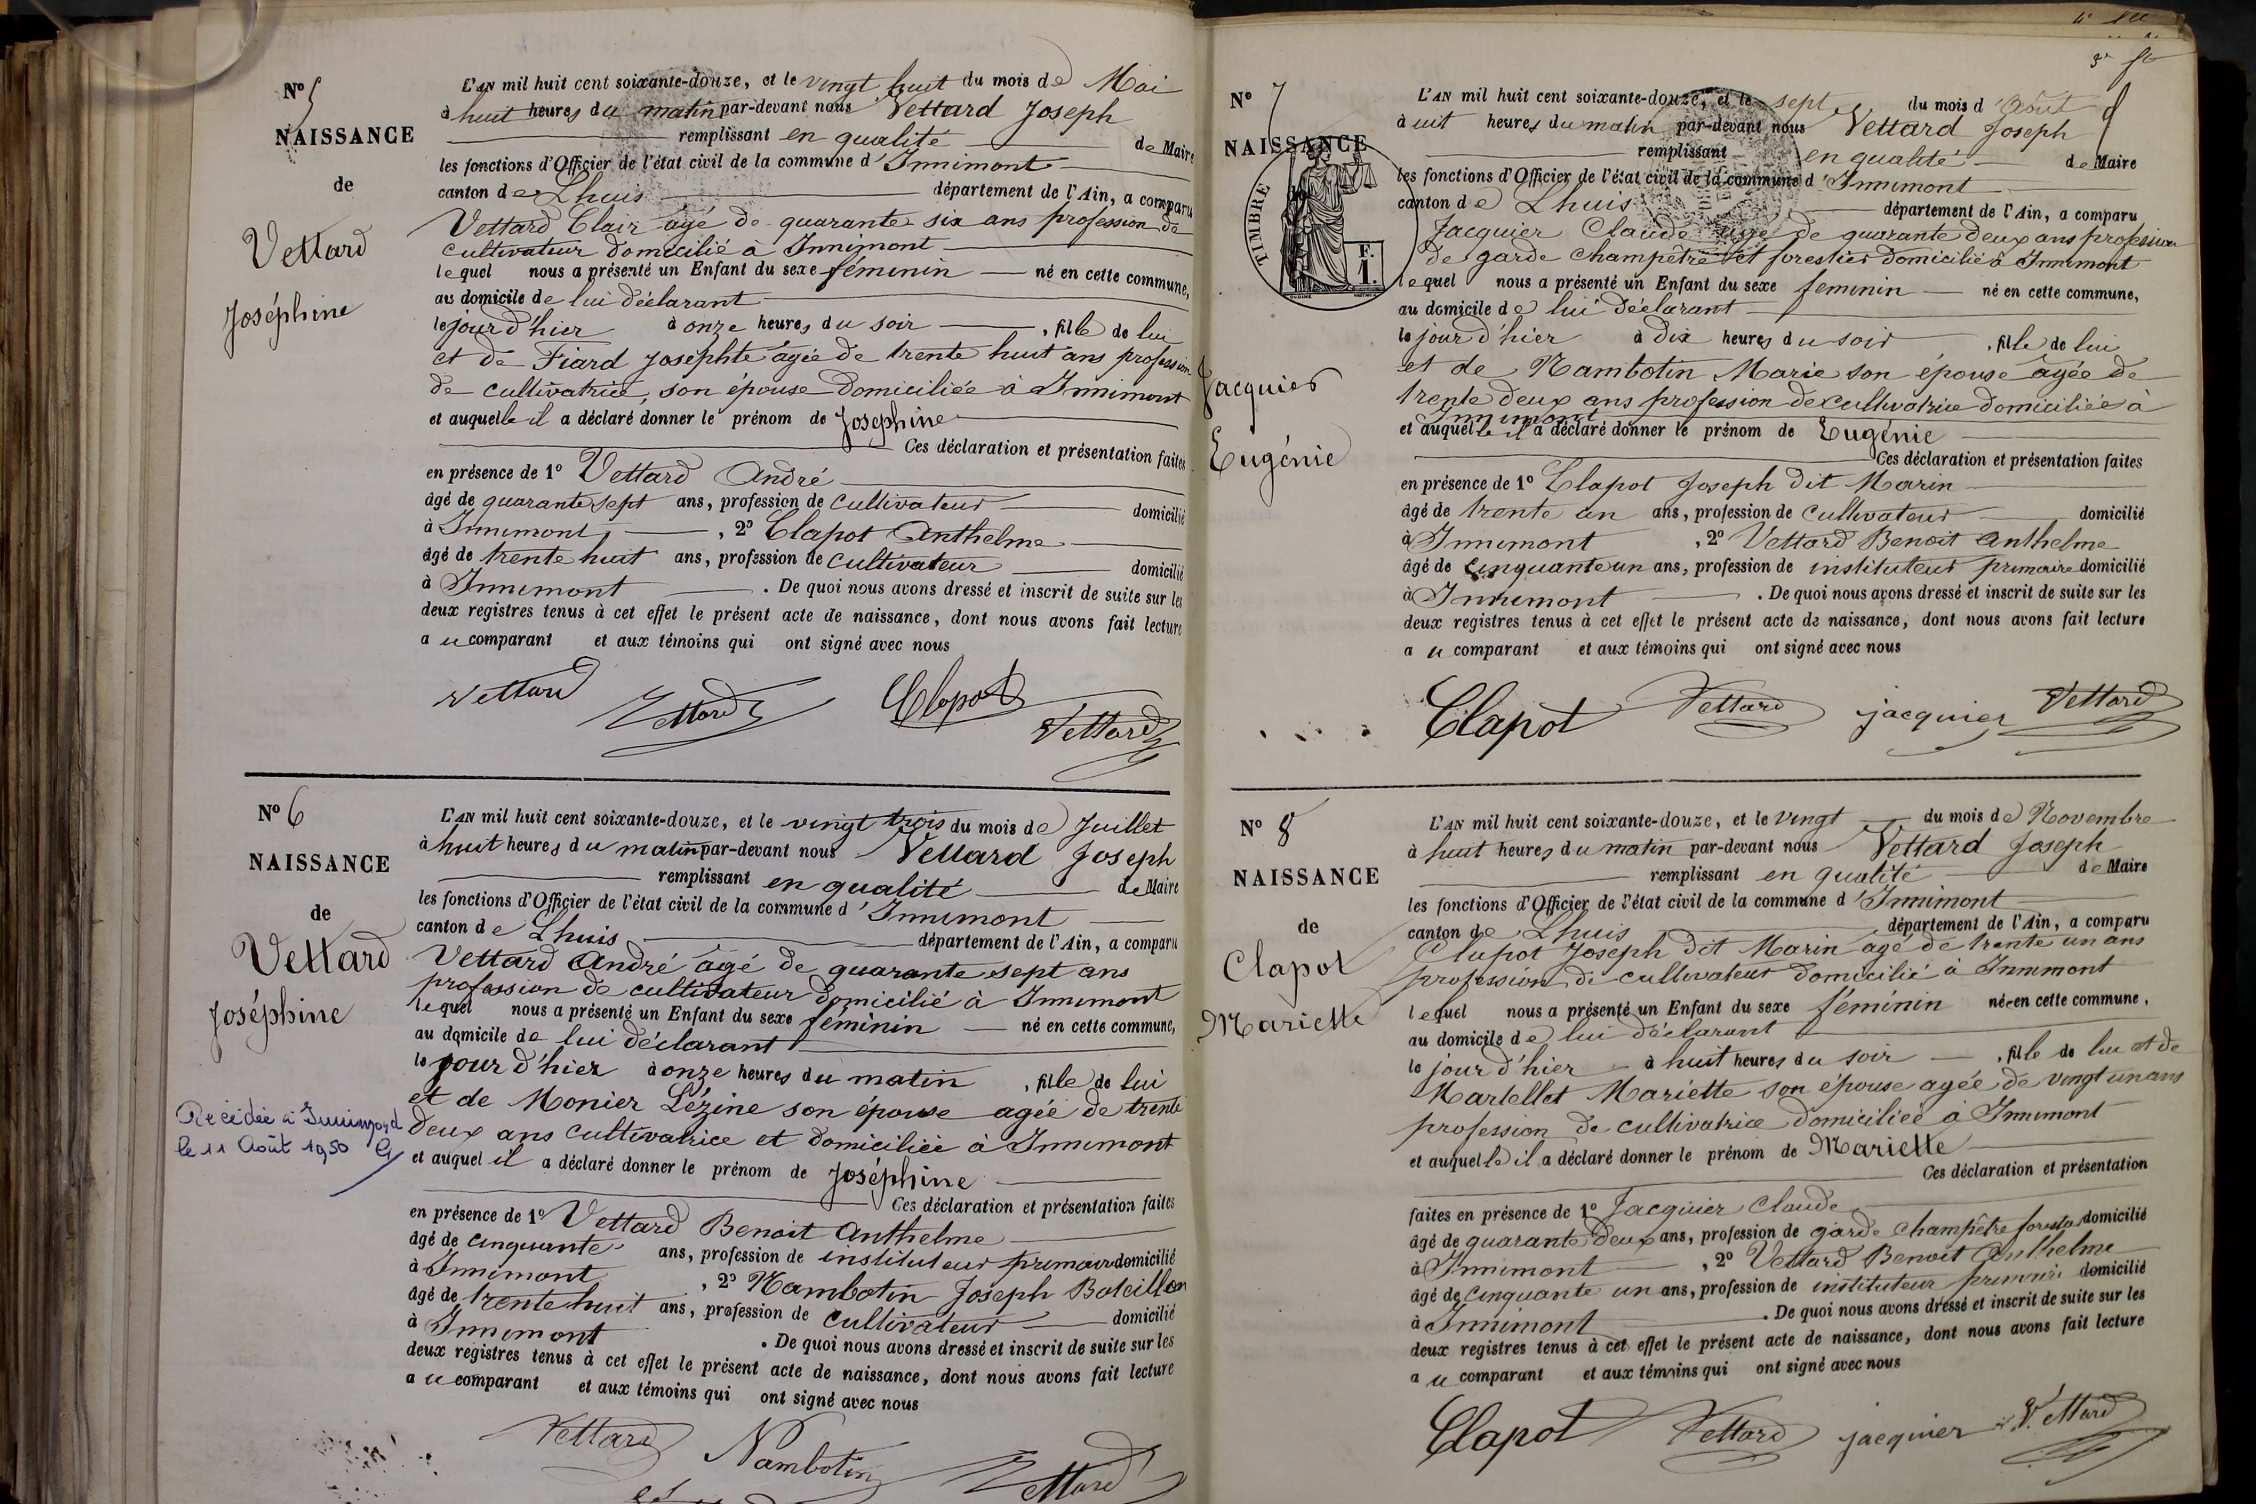 N° 5
NAISSANCE
de
Vettard
Joséphine
L'AN mil huit cent soixante-douze, et le vingt huit du mois de Mai
à huit heures du matin par-devant nous Vettard Joseph
remplissant en qualité de Maire
les fonctions d'Officier de l'état civil de la commune d'Innimont
canton de Lhuis département de l'Ain, a comparu
Vettard Clair âgé de quarante six ans profession de
cultivateur domicilié à Innimont
lequel nous a présenté un Enfant du sexe féminin né en cette commune,
au domicile de lui déclarant
le jour d'hier à onze heures du soir, fille de lui
et de Fiard Josephte âgée de trente huit ans profession
de cultivatrice, son épouse domiciliée à Innimont
et auquelle il a déclaré donner le prénom de Josephine
Ces déclaration et présentation faites
en présence de 1° Vettard André
âgé de quarante sept ans, profession de cultivateur domicilié
à Innimont, 2° Clapot Anthelme
âgé de trente huit ans, profession de cultivateur domicilié
à Innimont. De quoi nous avons dressé et inscrit de suite sur les
deux registres tenus à cet effet le présent acte de naissance, dont nous avons fait lecture
au comparant et aux témoins qui ont signé avec nous
Vettard Vettard Clapot Vettard
N° 6
NAISSANCE
de
Vettard
Joséphine
Décédée à Innimond
le 11 Août 1950
L'AN mil huit cent soixante-douze, et le vingt trois du mois de Juillet
à huit heures du matin par-devant nous Vettard Joseph
remplissant en qualité de Maire
les fonctions d'Officier de l'état civil de la commune d'Innimont
canton de Lhuis département de l'Ain, a comparu
Vettard André âgé de quarante sept ans
profession de cultivateur domicilié à Innimont
lequel nous a présenté un Enfant du sexe féminin né en cette commune,
au domicile de lui déclarant
le jour d'hier à onze heures du matin, fille de lui
et de Monier Lézine son épouse agée de trente
deux ans cultivatrice et domiciliée à Innimont
et auquel il a déclaré donner le prénom de Joséphine
Ces déclaration et présentation faites
en présence de 1° Vettard Benoit Anthelme
âgé de cinquante ans, profession de instituteur primaire domicilié
à Innimont, 2° Nambotin Joseph Bataillon
âgé de trente huit ans, profession de cultivateur domicilié
à Innimont. De quoi nous avons dressé et inscrit de suite sur les
deux registres tenus à cet effet le présent acte de naissance, dont nous avons fait lecture
au comparant et aux témoins qui ont signé avec nous
Vettard Nambotin Vettard
N° 7
NAISSANCE
TIMBRE
F.
1.
Jacquier
Eugénie
L'AN mil huit cent soixante-douze, et le sept du mois d'Août
à uit heures du matin par-devant nous Vettard Joseph
remplissant en qualité de Maire
les fonctions d'Officier de l'état civil de la commune d'Innimont
canton de Lhuis département de l'Ain, a comparu
Jacquier Claude âgé de quarante deux ans profession
de garde champêtre et forestier domicilié à Innimont
lequel nous a présenté un Enfant du sexe feminin né en cette commune,
au domicile de lui déclarant
le jour d'hier à dix heures du soir, fille de lui
et de Nambotin Marie son épouse âgée de
trente deux ans profession de cultivatrice domiciliée à
Innimont
et auquelle il a déclaré donner le prénom de Eugénie
Ces déclaration et présentation faites
en présence de 1° Clapot Joseph dit Marin
âgé de trente un ans, profession de cultivateur domicilié
à Innimont, 2° Vettard Benoit Anthelme
âgé de cinquante un ans, profession de instituteur primaire domicilié
à Innimont. De quoi nous avons dressé et inscrit de suite sur les
deux registres tenus à cet effet le présent acte de naissance, dont nous avons fait lecture
au comparant et aux témoins qui ont signé avec nous
Clapot Vettard jacquier Vettard
N° 8
NAISSANCE
de
Clapot
Mariette
L'AN mil huit cent soixante-douze, et le vingt du mois de Novembre
à huit heures du matin par-devant nous Vettard Joseph
remplissant en qualité de Maire
les fonctions d'Officier de l'état civil de la commune d'Innimont
canton de Lhuis département de l'Ain, a comparu
Clapot Joseph dit Marin agé de trente un ans
profession de cultivateur domicilié à Innimont
lequel nous a présenté un Enfant du sexe féminin né en cette commune,
au domicile de lui déclarant
le jour d'hier à huit heures du soir, fille de lui et de
Martellet Mariette son épouse agée de vingt un ans
profession de cultivatrice domiciliée à Innimont
et auquelle il a déclaré donner le prénom de Mariette
Ces déclaration et présentation
faites en présence de 1° Jacquier Claude
âgé de quarante deux ans, profession de garde champêtre domicilié
à Innimont, 2° Vettard Benoit Anthelme
âgé de cinquante un ans, profession de instituteur primaire domicilié
à Innimont. De quoi nous avons dressé et inscrit de suite sur les
deux registres tenus à cet effet le présent acte de naissance, dont nous avons fait lecture
au comparant et aux témoins qui ont signé avec nous
Clapot Vettard jacquier Vettard